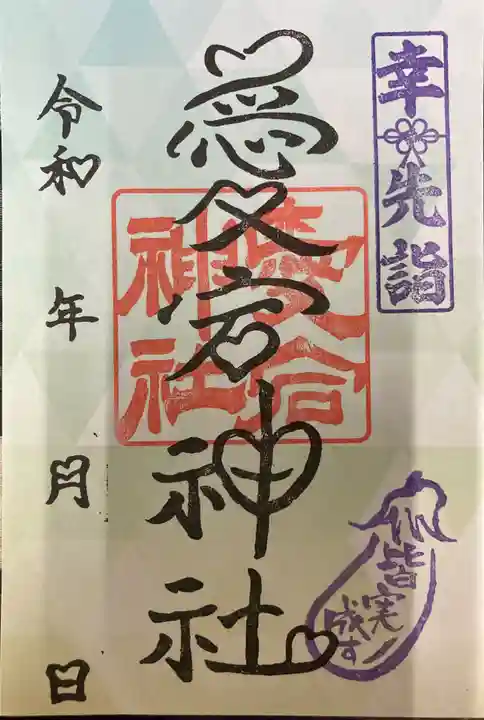 幸先詣
愛宕神社
愛宕
神社
令和 年 月 日
皆実
成す